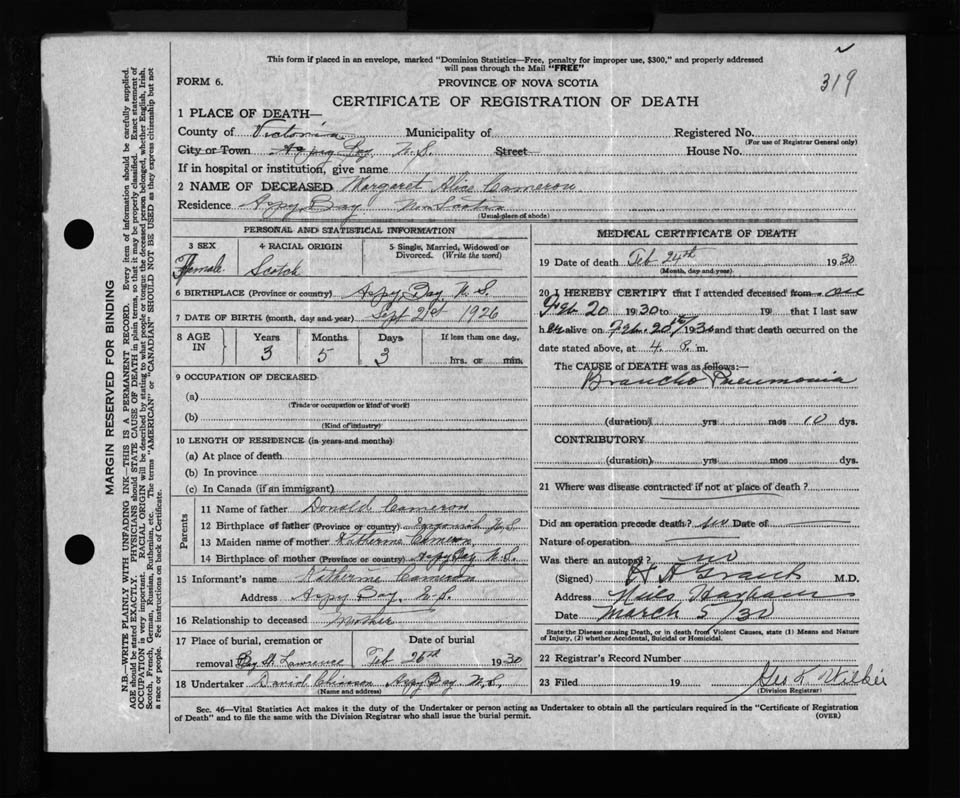 319
This form if placed in an envelope, marked "Dominion Statistics—Free, penalty for improper use, $300," and properly addressed
will pass through the Mail "FREE"
FORM 6.
PROVINCE OF NOVA SCOTIA
CERTIFICATE OF REGISTRATION OF DEATH
1 PLACE OF DEATH—
County of Victoria Municipality of Registered No.
(For use of Registrar General only)
City or Town Aspy Bay N.S. Street House No.
If in hospital or institution, give name
2 NAME OF DECEASED Margaret Alice Cameron
Residence Aspy Bay Nova Scotia
(Usual place of abode)
PERSONAL AND STATISTICAL INFORMATION
3 SEX 4 RACIAL ORIGIN 5 Single, Married, Widowed or
Divorced. (Write the word)
Female Scotch
6 BIRTHPLACE (Province or country) Aspy Bay N.S.
7 DATE OF BIRTH (month, day and year) Sept 21st 1926
8 AGE IN Years Months Days If less than one day,
3 5 3 hrs. or min.
9 OCCUPATION OF DECEASED
(a)
(Trade or occupation or kind of work)
(b)
(Kind of industry)
10 LENGTH OF RESIDENCE (in years and months)
(a) At place of death
(b) In province
(c) In Canada (if an immigrant)
Parents
11 Name of father Donald Cameron
12 Birthplace of father (Province or country) N.S.
13 Maiden name of mother Katherine Cameron
14 Birthplace of mother (Province or country) Aspy Bay N.S.
15 Informant's name Katherine Cameron
Address Aspy Bay, N.S.
16 Relationship to deceased Mother
17 Place of burial, cremation or Date of burial
removal Bay St. Lawrence Feb 26th 1930
18 Undertaker David Chiasson Aspy Bay N.S.
(Name and address)
MEDICAL CERTIFICATE OF DEATH
19 Date of death Feb 24th 1930
(Month, day and year)
20 I HEREBY CERTIFY that I attended deceased from on
Feb 20 1930 to 19 that I last saw
her alive on Feb. 20th 1930 and that death occurred on
date stated above, at 4 P. m.
The CAUSE of DEATH was as follows:—
Broncho Pneumonia
(duration) yrs mos 10 dys.
CONTRIBUTORY
(duration) yrs mos dys.
21 Where was disease contracted if not at place of death?
Did an operation precede death? no Date of
Nature of operation
Was there an autopsy? no
(Signed) Grant M.D.
Address Neils Harbour
Date March 5/30
State the Disease causing Death, or in death from Violent Causes, state (1) Means and Nature
of Injury, (2) whether Accidental, Suicidal or Homicidal.
22 Registrar's Record Number
23 Filed 19 Geo K Wilkie
(Division Registrar)
Sec. 46—Vital Statistics Act makes it the duty of the Undertaker or person acting as Undertaker to obtain all the particulars required in the "Certificate of Registration
of Death" and to file the same with the Division Registrar who shall issue the burial permit.
(OVER)
MARGIN RESERVED FOR BINDING
N.B.—WRITE PLAINLY WITH UNFADING INK—THIS IS A PERMANENT RECORD. Every item of information should be carefully supplied.
AGE should be stated EXACTLY. PHYSICIANS should STATE CAUSE OF DEATH in plain terms, so that it may be properly classified. Exact statement of
OCCUPATION is very important. RACIAL ORIGIN will be described by stating to what people or tongue the deceased person belonged, whether English, Irish,
Scotch, French, German, Russian, Ruthenian, etc. The terms "AMERICAN" or "CANADIAN" SHOULD NOT BE USED as they express citizenship but not
a race or people. See instructions on back of Certificate.